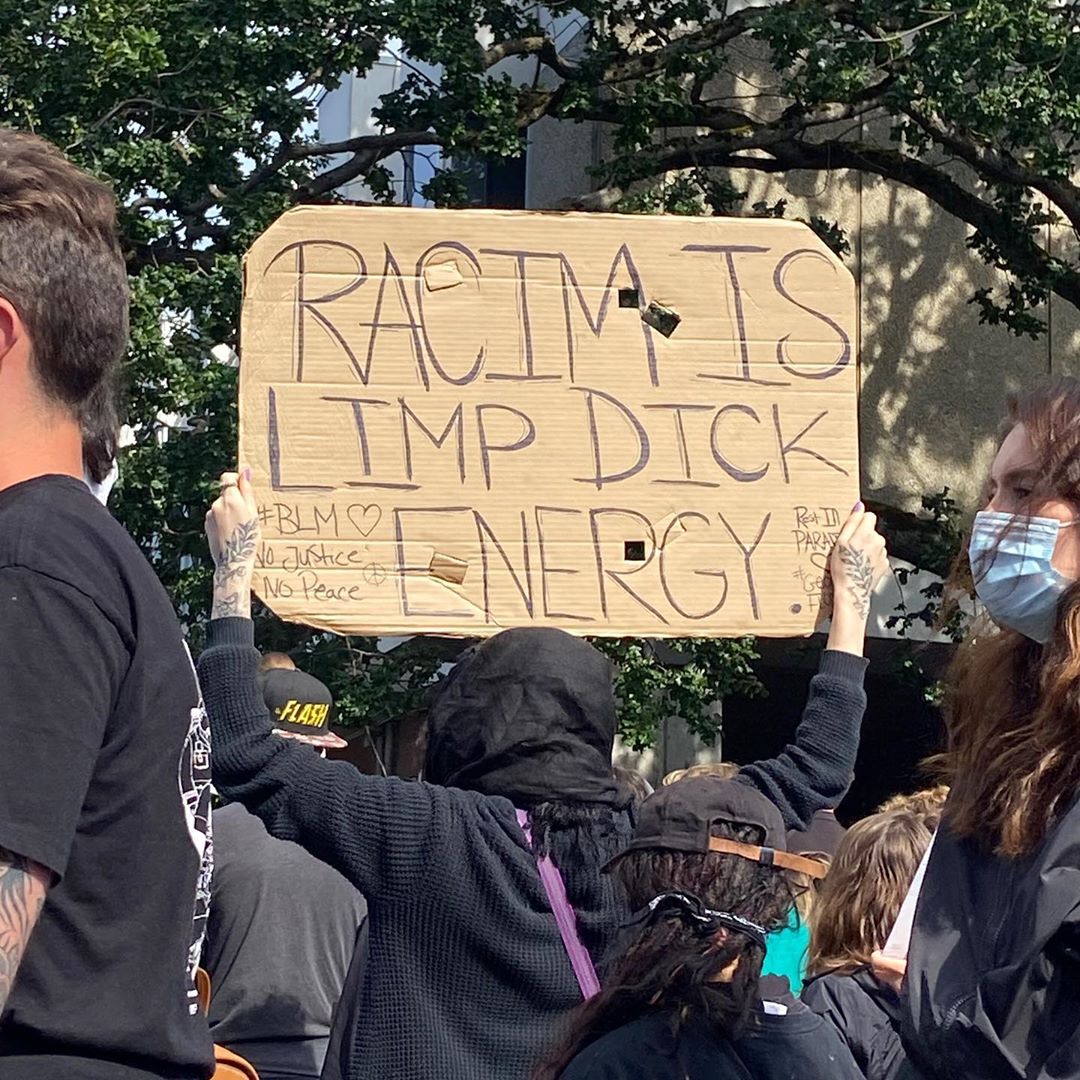 RACIM IS
LIMP DICK
ENERGY
#BLM ♡
No Justice
No Peace
Rest In
FLASH